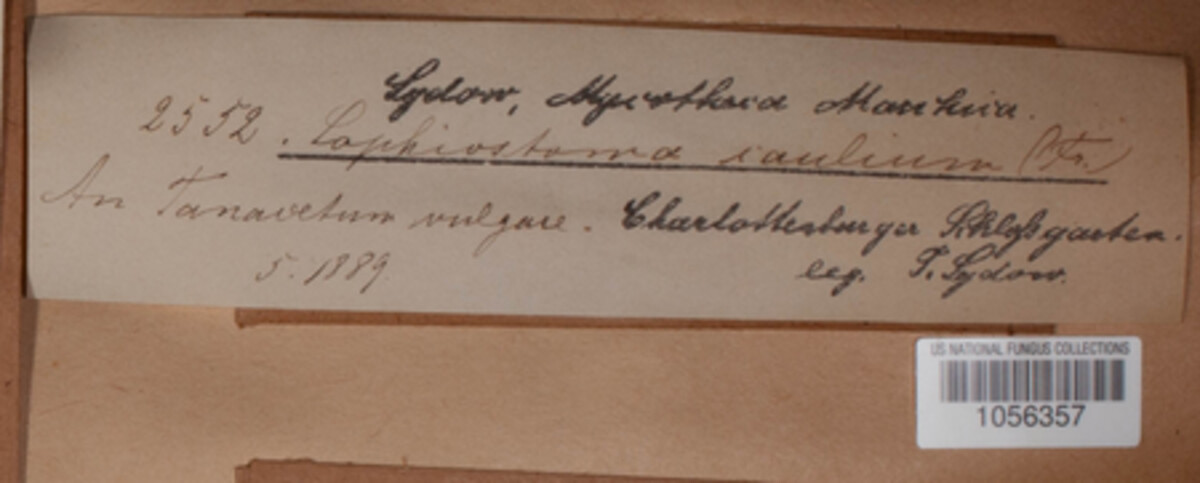 Sydow, Mycotheca Marchica.
2552. Lophiostoma caulium (Fr.)
An Tanacetum vulgare. Charlottenburger Schloßgarten.
5. 1889. leg. P. Sydow.
US NATIONAL FUNGUS COLLECTIONS
1056357